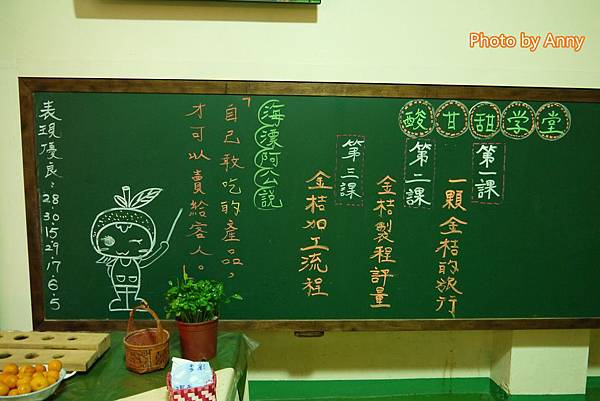 Photo by Anny
酸甘甜学堂
第一課
一顆金桔的旅行
第二課
金桔製程評量
第三課
金桔加工流程
海濂阿公説
「自己敢吃的產品，
才可以賣給客人。
表現優良：28.30.15.29.17.6.5